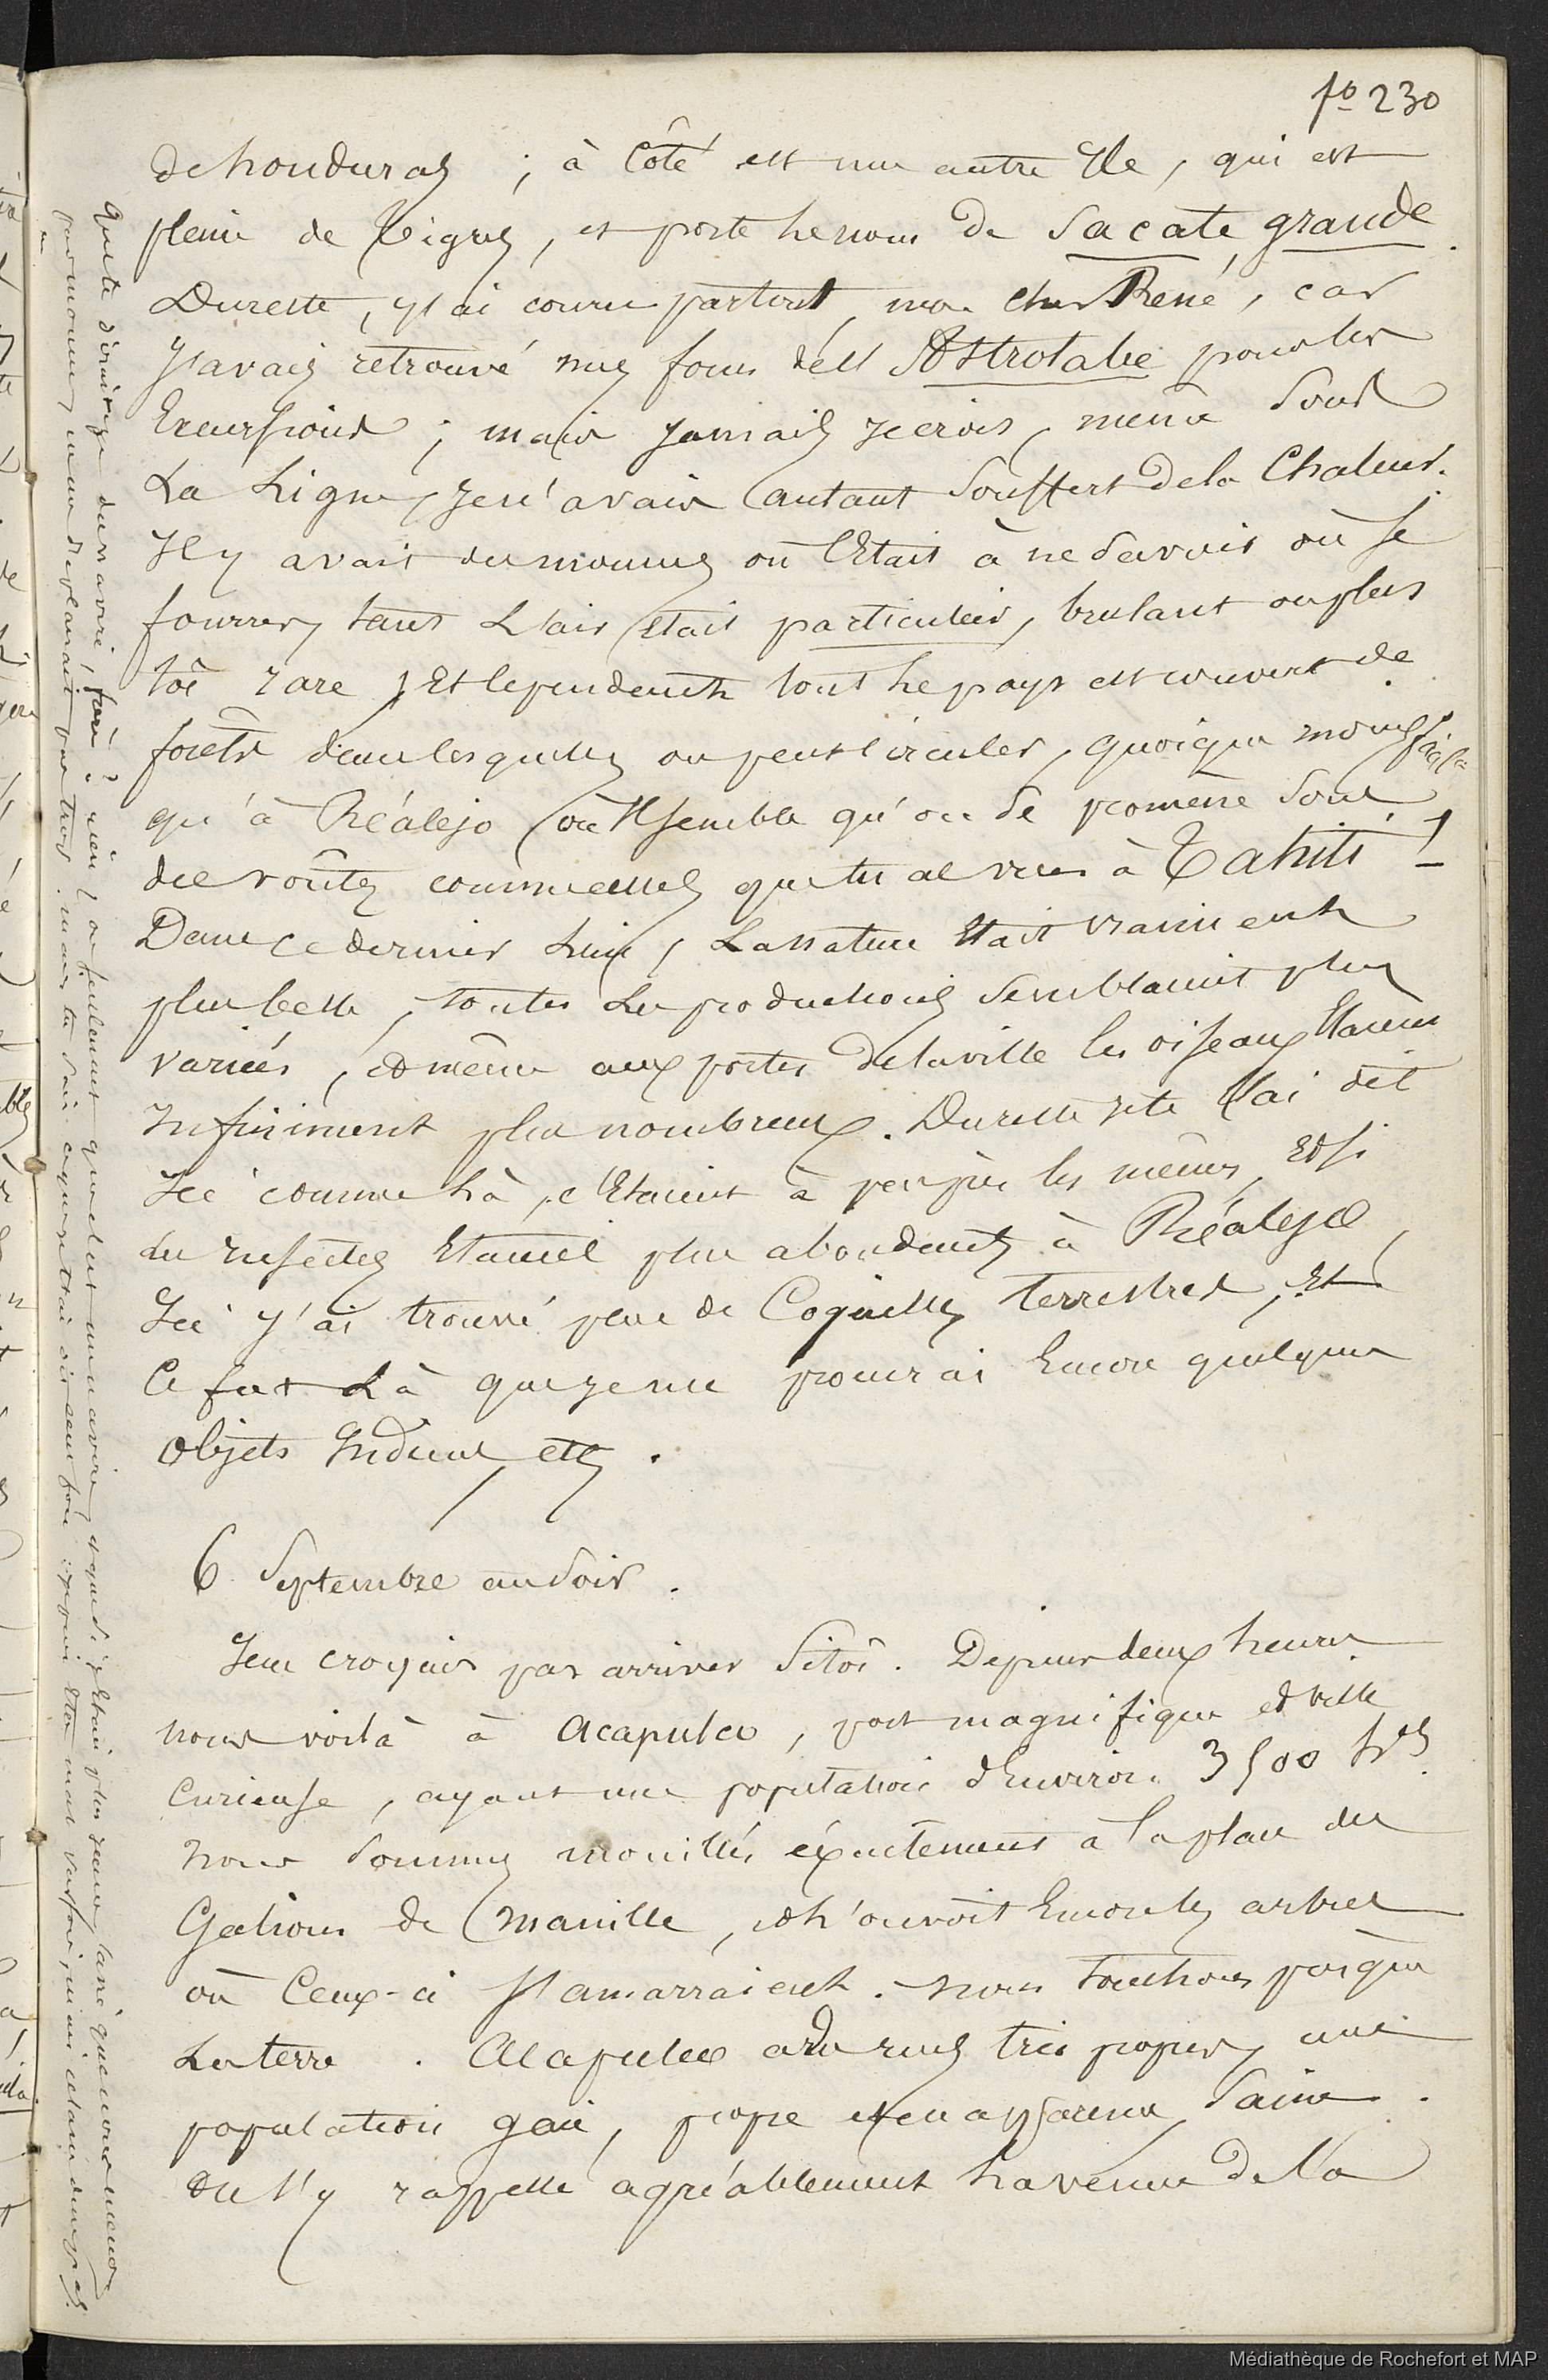 fo 230
de honduras ; à Côté est une autre Ile, qui est
pleine de Tigres, et porte le nom de Sacate grande.
Dureste, j'ai couru partout, mon cher René, car
J'avais retrouvé mes fous de l'Astrolabe pour les
Excursions ; mais jamais je crois, même Sous
La Ligne, Je n'avais autant Souffert de la Chaleur.
Il y avait des moments où C'Etait à ne Savoir où se
fourrer, tant L'air était particulier, brulant ou plus
tôt rare ; Et cependant tout le pays est couvert de
forêts dans lesquelles on peut circuler, quoique moins
qu'à Réaléjo où Il semble qu'on se promène Sous
des voûtes comme celles que tu as vues à Tahiti !
Dans ce dernier Lieu, La nature Etait vraiment
plus belle, toutes Les productions Semblaient plus
variées, et même aux portes de la ville les oiseaux Etaient
Infiniment plus nombreux. Dureste je te l'ai dit
Ici comme Là, c'Etaient à peu près les mêmes, Et si
les Insectes Etaient plus abondants à Réalejo,
Ici j'ai trouvé plus de Coquilles terrestres, Et
Ce fut Là que je me procurai Encore quelques
Objets Indiens, etc.
6 Septembre au Soir.
Je ne croyais pas arriver Sitôt. Depuis deux heures
nous voilà à Acapulco, port magnifique et ville
Curieuse, ayant une population d'Environ 3500 hts.
Nous Sommes mouillés éxactement à la place des
Galions de Manille, et l'on voit Encore les arbres
où Ceux-ci S'amarraient. Nous touchons presque
La terre. Acapulco a des rues très propres, une
population gaie, propre et en apparence Saine.
On S'y rappelle agréablement la venue de l'a